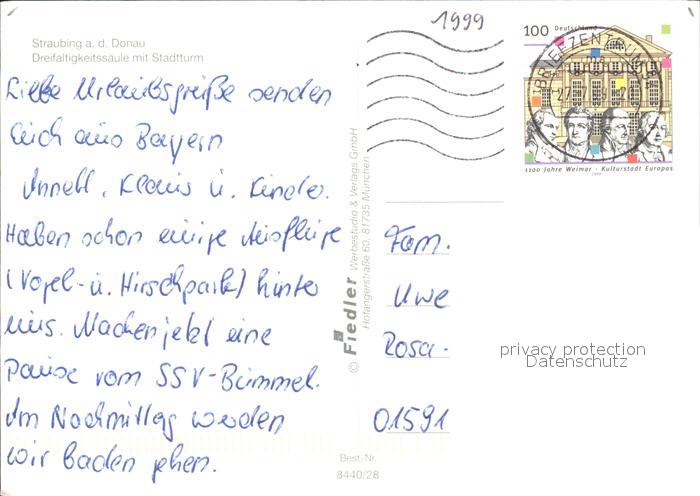 1999
100 Deutschland
BRIEFZENTRUM
1100 Jahre Weimar - Kulturstadt Europas
1999
Straubing a. d. Donau
Dreifaltigkeitssäule mit Stadtturm
Liebe Urlaubsgrüße senden
Euch aus Bayern
Annett, Klaus u. Kinder.
Haben schon einige Ausflüge
(Vogel- u. Hirschpark) hinter
uns. Machen jetzt eine
Pause vom SSV-Bummel.
Am Nachmittag werden
wir baden gehen.
© Fiedler Werbestudio & Verlags GmbH
Hofangerstraße 60, 81735 München
Fam.
Uwe
Rosa.
01591
privacy protection
Datenschutz
Best.-Nr.
8440/28